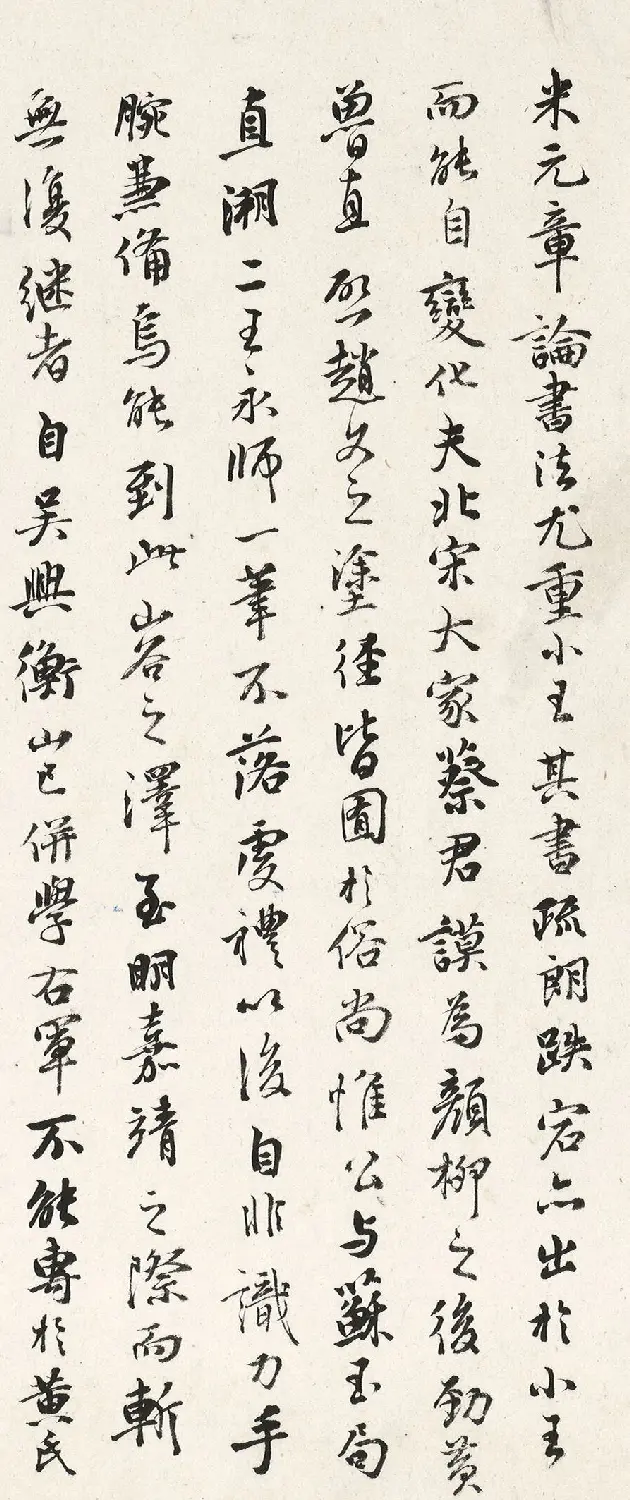 米元章論書法尤重小王其書疏朗跌宕亦出於小王
而能自變化夫北宋大家蔡君謨為顏柳之後勁黃
魯直啓趙文之塗徑皆囿於俗尚惟公与蘇玉局
直溯二王永師一筆不落虞禮以後自非識力手
腕兼備烏能到此山谷之澤至明嘉靖之際而斬
無復继者自吳興衡山已併學右軍不能專於黃氏